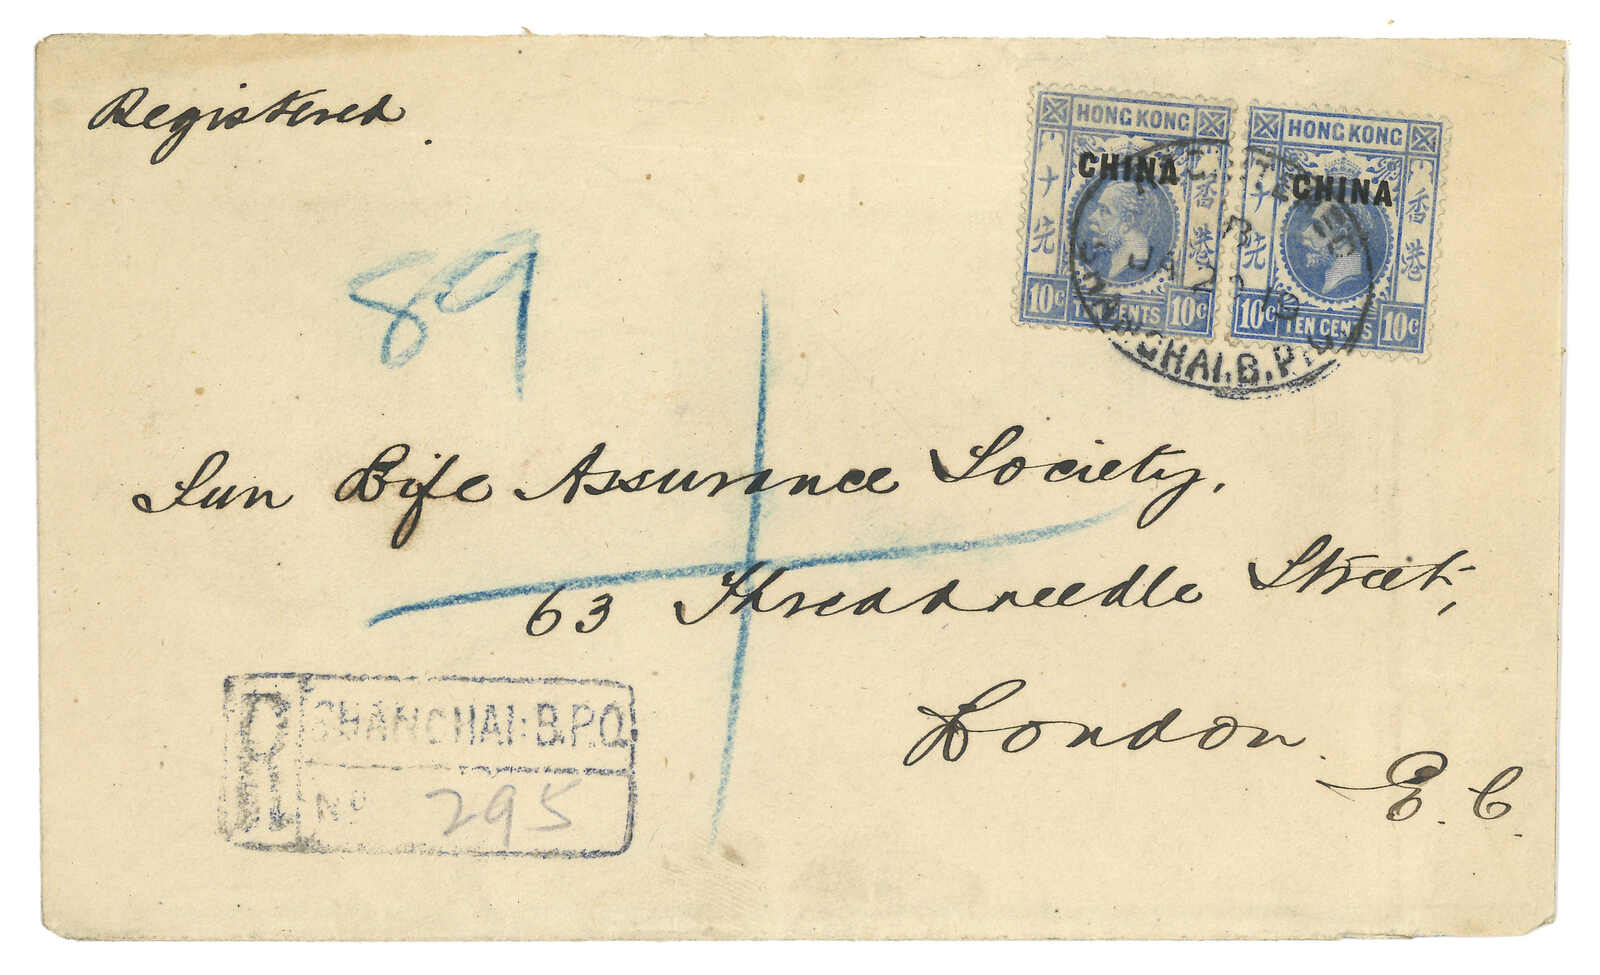 Registered.
HONG KONG
CHINA
十先
香港
10c TEN CENTS 10c
HONG KONG
CHINA
十先
香港
10c TEN CENTS 10c
REGISTERED
B
JA 2 19
SHANGHAI.B.P.O.
89
Sun Life Assurance Society,
63 Threadneedle Street,
London.
E.C.
R
SHANGHAI:B.P.O.
No 295